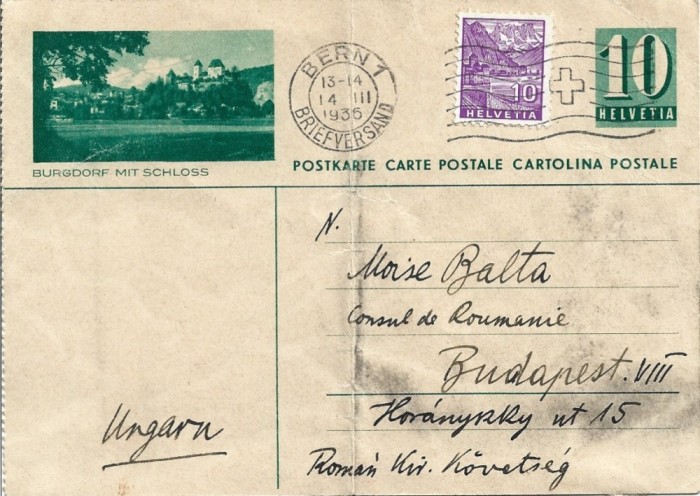 BURGDORF MIT SCHLOSS
BERN 1
13-14
14 III
1936
BRIEFVERSAND
10
HELVETIA
10
HELVETIA
POSTKARTE CARTE POSTALE CARTOLINA POSTALE
N.
Moise Balta
Consul de Roumanie
Budapest. VIII
Horányszky ut 15
Román Kir. Követség
Ungarn